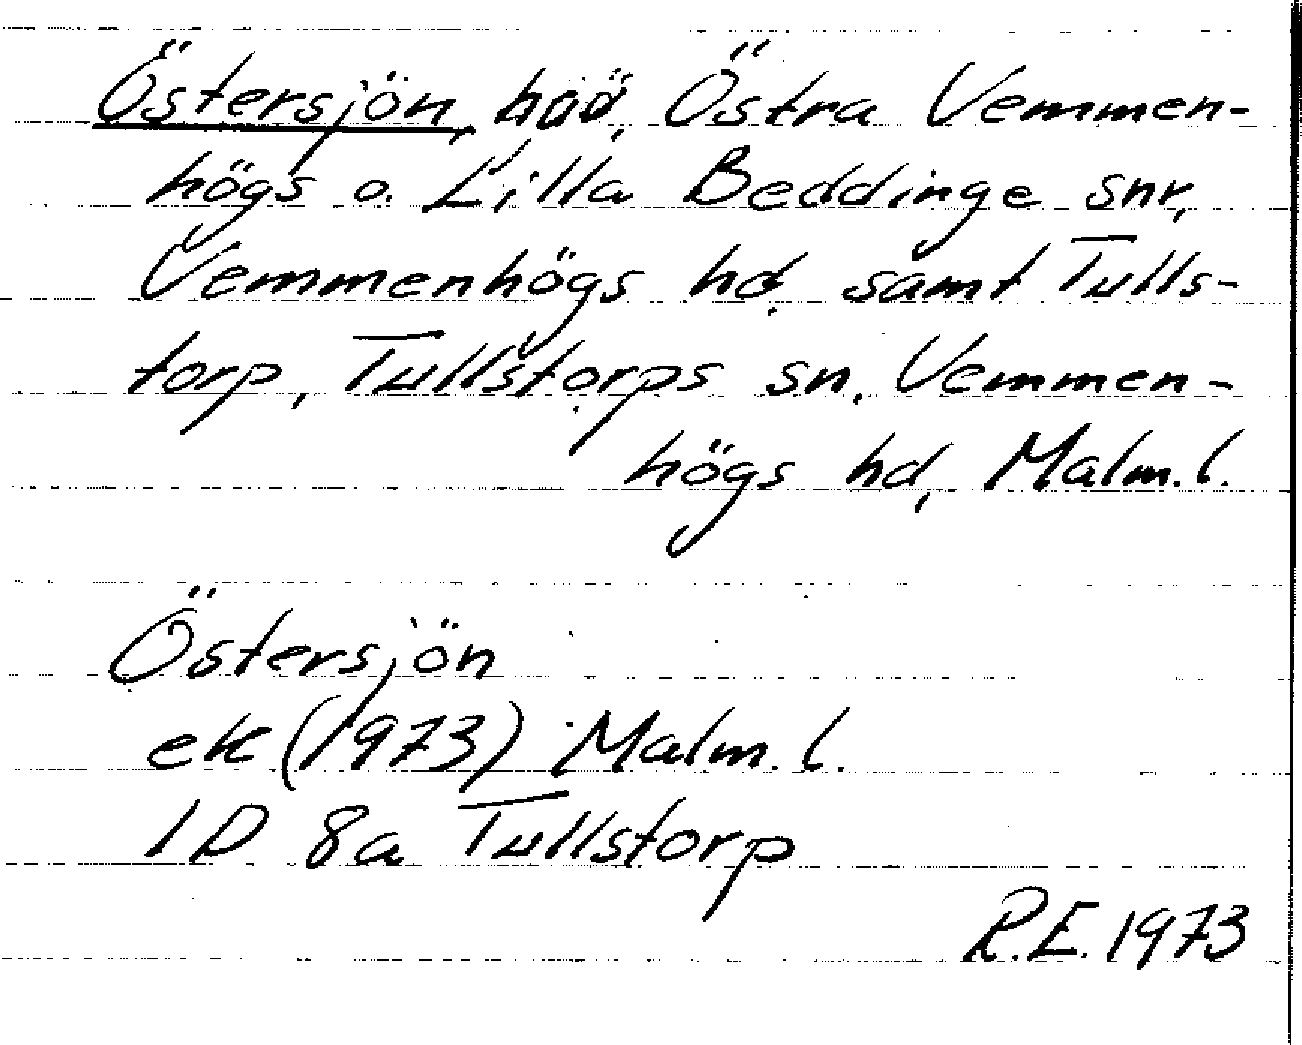 Östersjön, Östra Vemmen-
högs o. Lilla Beddinge snr,
Vemmenhögs hd, samt Tulls-
torp, Tullstorps sn, Vemmen-
högs hd, Malm.l.
Östersjön
ek (1973) Malm.l.
1D 8a Tullstorp
R.E. 1973